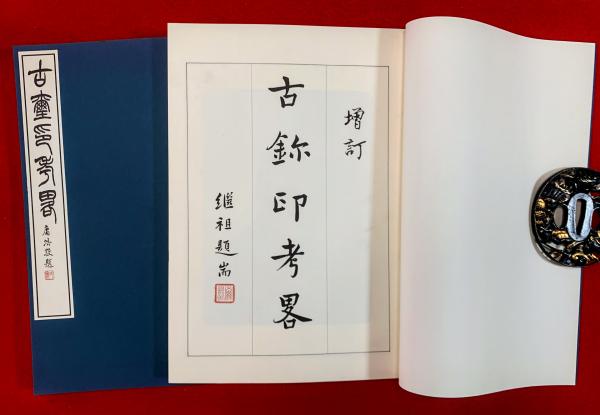 古璽印考畧
敬題
增訂
古鉨印考畧
継祖題耑